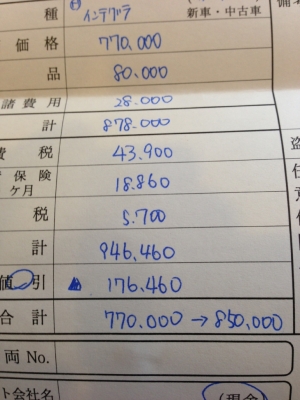 種 インテグラ 新車・中古車
価格 770,000
品 80,000
諸費用 28.000
計 878.000
費税 43.900
保険 18.860
ケ月
税 5.700
計 946,460
値引 ▲ 176.460
合計 770.000 → 850,000
両 No.
ト会社名 (現金